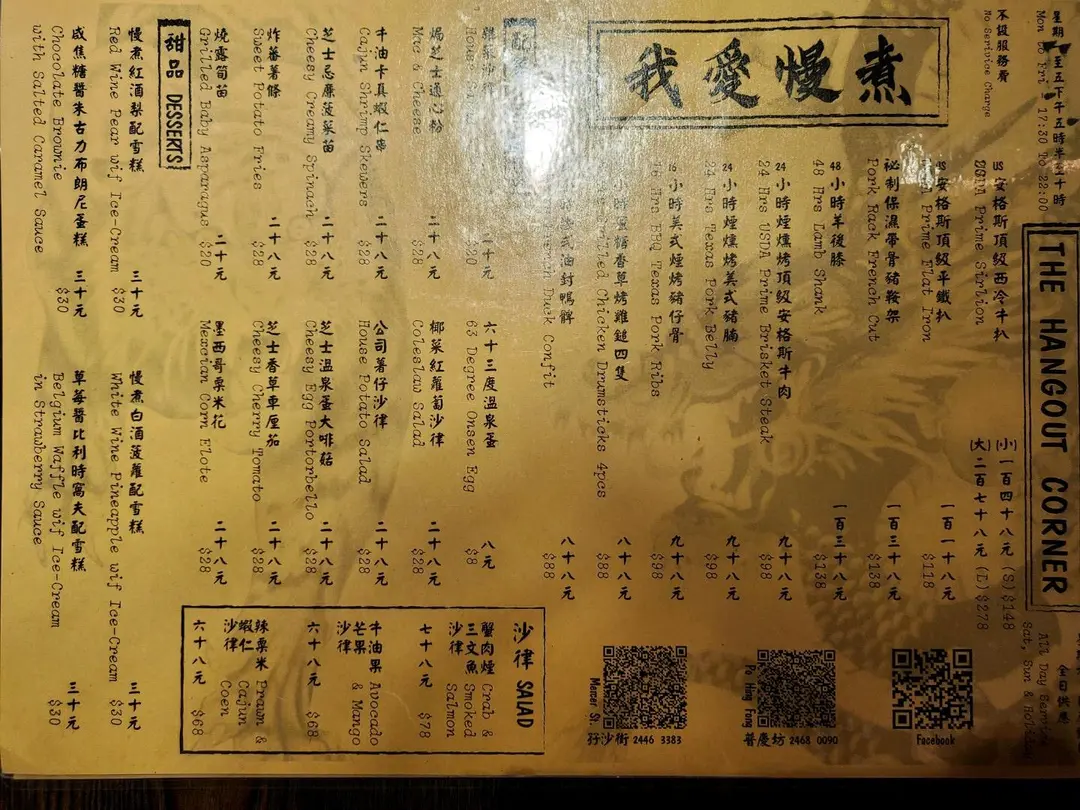 星期一至五下午五時半至十時
Mon to Fri 17:30 To 22:00
不設服務費
No Serivice Charge
THE HANGOUT CORNER
全日供應
All Day Service
Sat, Sun & Holiday
我愛慢煮
US 安格斯頂級西冷牛扒 (小) 一百四十八元 (S) $148
USDA Prime Sirlion (大) 二百七十八元 (L) $278
US 安格斯頂級平鐵扒 一百一十八元
Prime Flat Iron $118
秘制保濕帶骨豬鞍架 一百三十八元
Pork Rack French Cut $138
48 小時羊後膝 一百三十八元
48 Hrs Lamb Shank $138
24 小時煙燻烤頂級安格斯牛肉 九十八元
24 Hrs USDA Prime Brisket Steak $98
24 小時煙燻烤美式豬腩 九十八元
24 Hrs Texas Pork Belly $98
小時美式煙烤豬仔骨 九十八元
Hrs BBQ Texas Pork Ribs $98
糖香草烤雞鎚四隻 八十八元
Chicken Drumsticks 4pcs $88
式油封鴨髀 八十八元
Duck Confit $88
Facebook
Po Hing Fong
普慶坊 2468 0090
Mercer St.
孖沙街 2446 3383
配
十元
$20
六十三度温泉蛋 八元
63 Degree Onsen Egg $8
焗芝士通心粉 二十八元
Mac & Cheese $28
椰菜紅蘿蔔沙律 二十八元
Coleslaw Salad $28
牛油卡真蝦仁串 二十八元
Cajun Shrimp Skewers $28
公司薯仔沙律 二十八元
House Potato Salad $28
芝士忌廉菠菜苗 二十八元
Cheesy Creamy Spinach $28
芝士温泉蛋大啡菇 二十八元
Cheesy Egg Portorbello $28
炸蕃薯條 二十八元
Sweet Potato Fries $28
芝士香草車厘茄 二十八元
Cheesy Cherry Tomato $28
燒露筍苗 二十元
Grilled Baby Asparagus $20
墨西哥粟米花 二十八元
Mexcian Corn Elote $28
沙律 SALAD
蟹肉煙三文魚沙律
Crab & Smoked Salmon
七十八元 $78
牛油果芒果沙律
Avocado & Mango
六十八元 $68
辣粟米蝦仁沙律
Prawn & Cajun Coen
六十八元 $68
甜品 DESSERTS
慢煮紅酒梨配雪糕 三十元
Red Wine Pear wif Ice-Cream $30
慢煮白酒菠蘿配雪糕 三十元
White Wine Pineapple wif Ice-Cream $30
咸焦糖醬朱古力布朗尼蛋糕 三十元
Chocolate Brownie $30
with Salted Caramel Sauce
草莓醬比利時窩夫配雪糕 三十元
Belgium Waffle wif Ice-Cream $30
in Strawberry Sauce